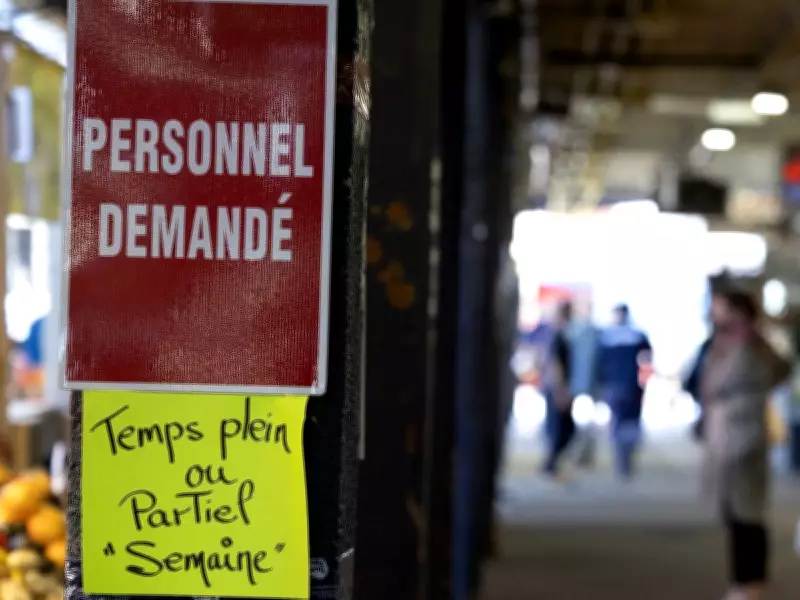 PERSONNEL
DEMANDÉ
Temps plein
ou
Partiel
"Semaine"